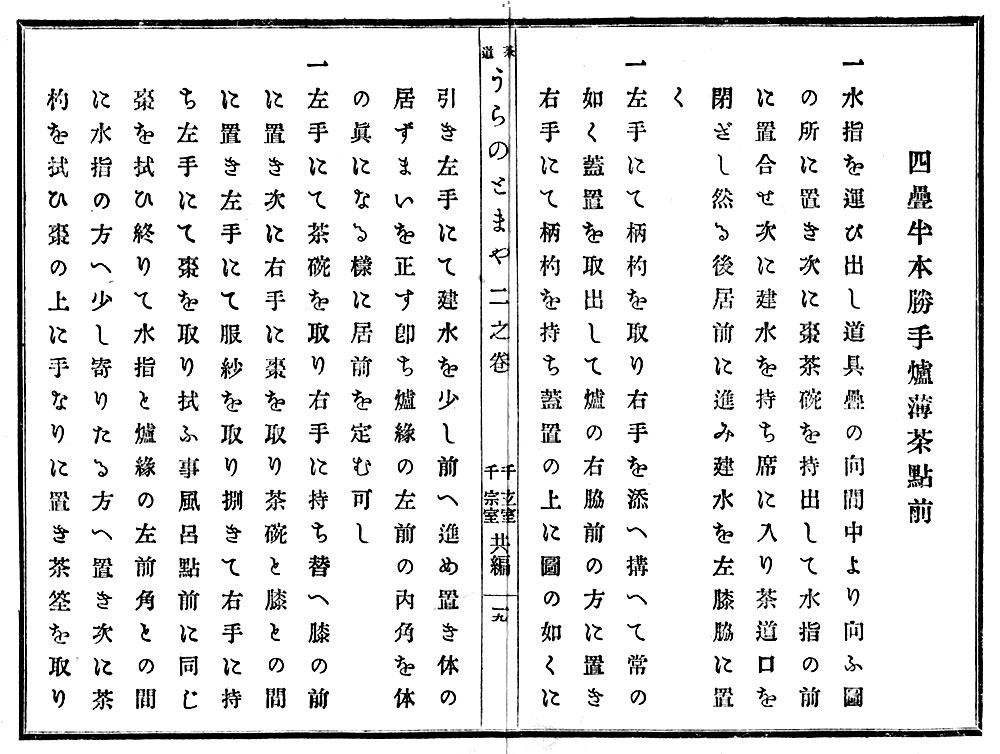 四疊半本勝手爐薄茶點前
一水指を運び出し道具疊の向間中より向ふ圖
の所に置き次に棗茶碗を持出して水指の前
に置合せ次に建水を持ち席に入り茶道口を
閉ざし然る後居前に進み建水を左膝脇に置
く
一左手にて柄杓を取り右手を添へ搆へて常の
如く蓋置を取出して爐の右脇前の方に置き
右手にて柄杓を持ち蓋置の上に圖の如くに
茶道うらのとまや二之卷
千玄室
千宗室
共編
一九
引き左手にて建水を少し前へ進め置き体の
居ずまいを正す卽ち爐緣の左前の內角を体
の眞になる樣に居前を定む可し
一左手にて茶碗を取り右手に持ち替へ膝の前
に置き次に右手に棗を取り茶碗と膝との間
に置き左手にて服紗を取り捌きて右手に持
ち左手にて棗を取り拭ふ事風呂點前に同じ
棗を拭ひ終りて水指と爐緣の左前角との間
に水指の方へ少し寄りたる方へ置き次に茶
杓を拭ひ棗の上に手なりに置き茶筌を取り